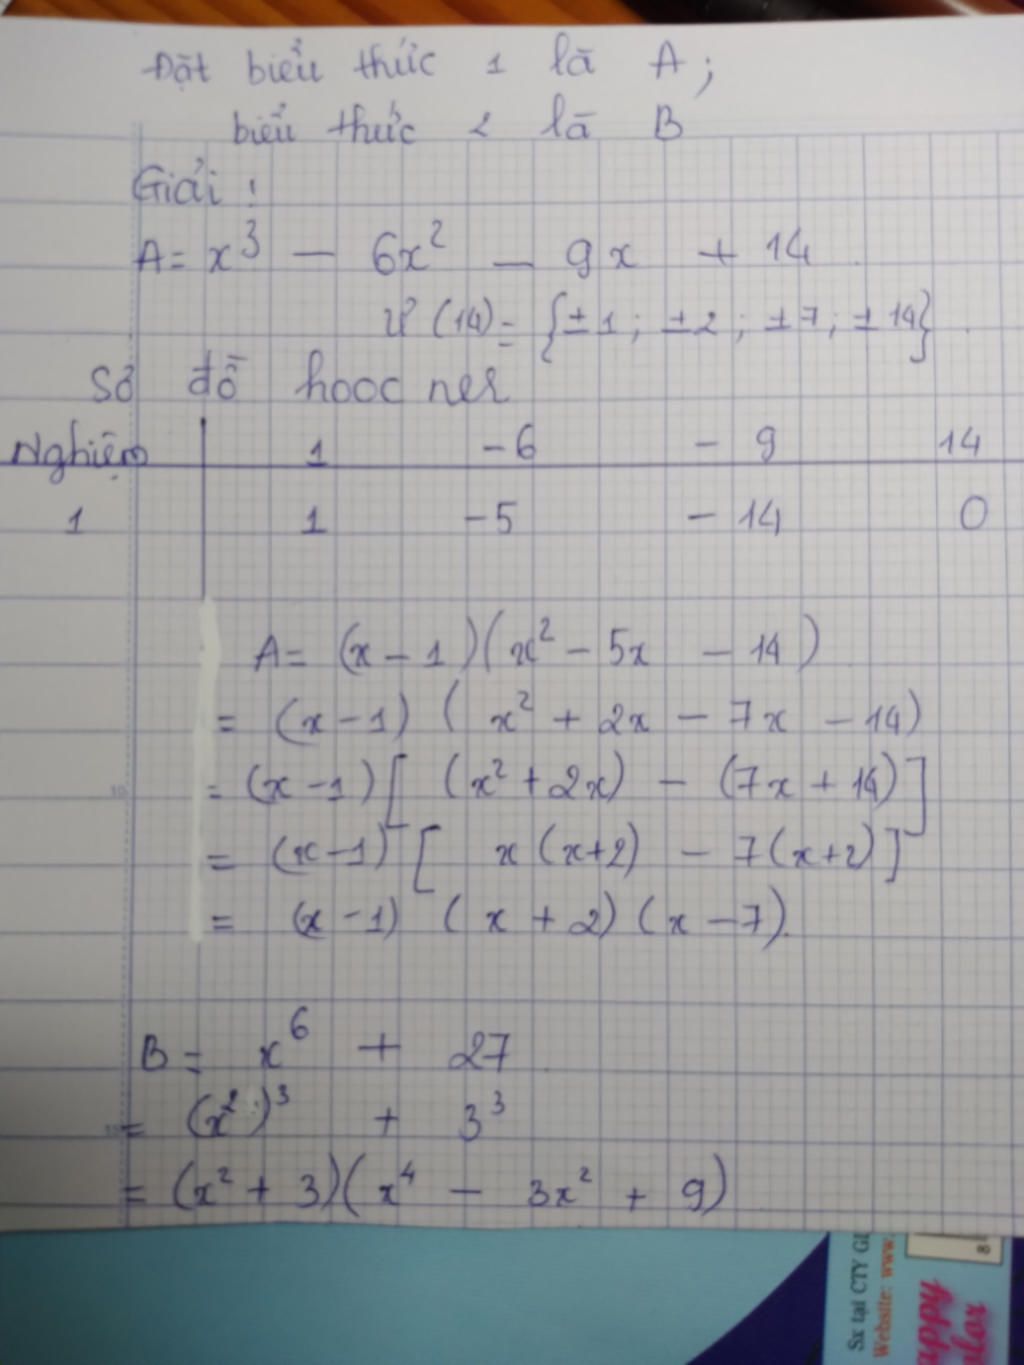 Đặt biểu thức 1 là A;
biểu thức 2 là B
Giải:
A = x³ - 6x² - 9x + 14
Ư(14) = {±1; ±2; ±7; ±14}.
Sơ đồ hooc ner
Nghiệm 1 -6 -9 14
1 1 -5 -14 0
A = (x-1)(x² - 5x - 14)
= (x-1) (x² + 2x - 7x - 14)
= (x-1)[(x² + 2x) - (7x + 14)]
= (x-1)[x(x+2) - 7(x+2)]
= (x-1) (x + 2)(x - 7).
B = x⁶ + 27
= (x²)³ + 3³
= (x² + 3)(x⁴ - 3x² + 9)
Sx tại CTY
Website: www.
8